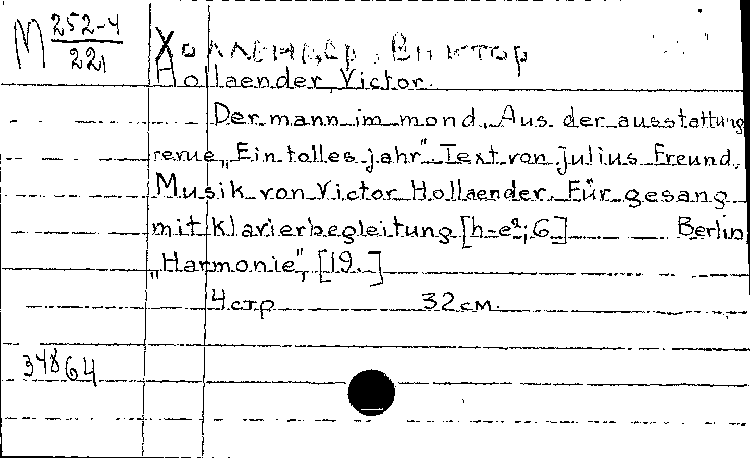 М 252-4
221
Холлендер, Виктор
Hollaender, Victor.
Der mann im mond. Aus der ausstattung
revue „Ein tolles jahr" Text von Julius Freund.
Musik von Victor Hollaender. Für gesang
mit klavierbegleitung [h-e²; G] Berlin,
„Harmonie", [19. ]
4 стр 32 см.
34864